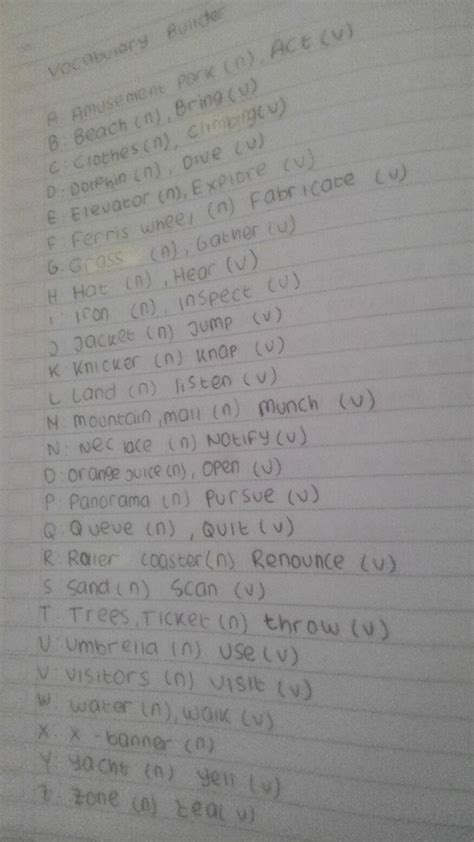 Vocabulary Builder
A Amusement Park (n), Act (v)
B. Beach (n), Bring (v)
C. Clothes (n), Climbing (v)
D. Dolphin (n), Dive (v)
E. Elevator (n), Explore (v)
F. Ferris wheel (n) Fabricate (v)
G. Grass (n), Gather (v)
H. Hat (n), Hear (v)
I. Iron (n), Inspect (v)
J Jacket (n) Jump (v)
K Knicker (n) Knap (v)
L Land (n) listen (v)
M mountain, mall (n) munch (v)
N. Neclace (n) Notify (v)
O. Orange Juice (n), Open (v)
P. Panorama (n) Pursue (v)
Q. Queue (n), Quit (v)
R. Roler coaster (n) Renounce (v)
S Sand (n) Scan (v)
T. Trees, Ticket (n) throw (v)
U. Umbrella (n) Use (v)
V. Visitors (n) Visit (v)
W. Water (n), Walk (v)
X. X-banner (n)
Y. Yacht (n) Yell (v)
Z. Zone (n) Zeal (v)